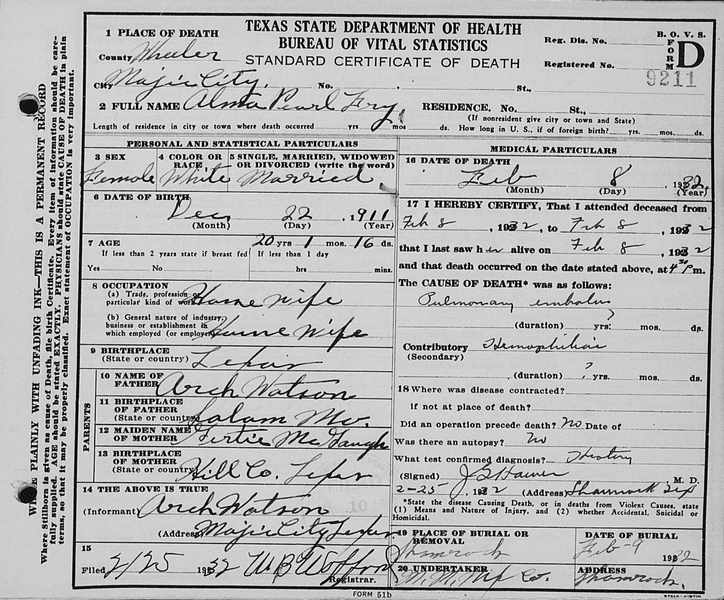 TEXAS STATE DEPARTMENT OF HEALTH
BUREAU OF VITAL STATISTICS
STANDARD CERTIFICATE OF DEATH
B. O. V. S.
FORM D
Reg. Dis. No.
Registered No.
9211
1 PLACE OF DEATH
County Wheeler
City Magic City, No. St.,
2 FULL NAME Alma Pearl Fry RESIDENCE, No. St.,
(If nonresident give city or town and State)
Length of residence in city or town where death occurred yrs. mos. ds. How long in U. S., if of foreign birth? yrs. mos. ds.
PERSONAL AND STATISTICAL PARTICULARS
3 SEX Female
4 COLOR OR RACE, White
5 SINGLE, MARRIED, WIDOWED OR DIVORCED (write the word) Married
6 DATE OF BIRTH
Dec 22 1911
(Month) (Day) (Year)
7 AGE 20 yrs 1 mos. 16 ds.
If less than 2 years state if breast fed If less than 1 day
Yes No hrs. min.
8 OCCUPATION
(a) Trade, profession or particular kind of work House Wife
(b) General nature of industry, business or establishment in which employed (or employer) House Wife
9 BIRTHPLACE
(State or country) Texas
PARENTS
10 NAME OF FATHER Arch Watson
11 BIRTHPLACE OF FATHER
(State or country) Salam Mo.
12 MAIDEN NAME OF MOTHER Gertie
13 BIRTHPLACE OF MOTHER
(State or country) Hill Co. Texas
14 THE ABOVE IS TRUE
(Informant) Arch Watson
(Address) Magic City Texas
15
Filed 2/25 1932 W B Wofford
Registrar.
MEDICAL PARTICULARS
16 DATE OF DEATH
Feb 8 1932
(Month) (Day) (Year)
17 I HEREBY CERTIFY, That I attended deceased from
Feb 8 1932, to Feb 8, 1932
that I last saw her alive on Feb 8, 1932
and that death occurred on the date stated above, at 4 30 P m.
The CAUSE OF DEATH* was as follows:
Pulmonary embolus
(duration) ? yrs. mos. ds.
Contributory
(Secondary)
(duration) ? yrs. mos. ds.
18 Where was disease contracted?
If not at place of death?
Did an operation precede death? No Date of
Was there an autopsy? No
What test confirmed diagnosis? History
(Signed) M. D.
2-25 1932 (Address) Shamrock Tex
*State the disease Causing Death, or in deaths from Violent Causes, state (1) Means and Nature of Injury, and (2) whether Accidental, Suicidal or Homicidal.
19 PLACE OF BURIAL OR REMOVAL Shamrock
DATE OF BURIAL Feb-9 1932
20 UNDERTAKER Co.
ADDRESS Shamrock.
FORM 51b
WRITE PLAINLY WITH UNFADING INK—THIS IS A PERMANENT RECORD